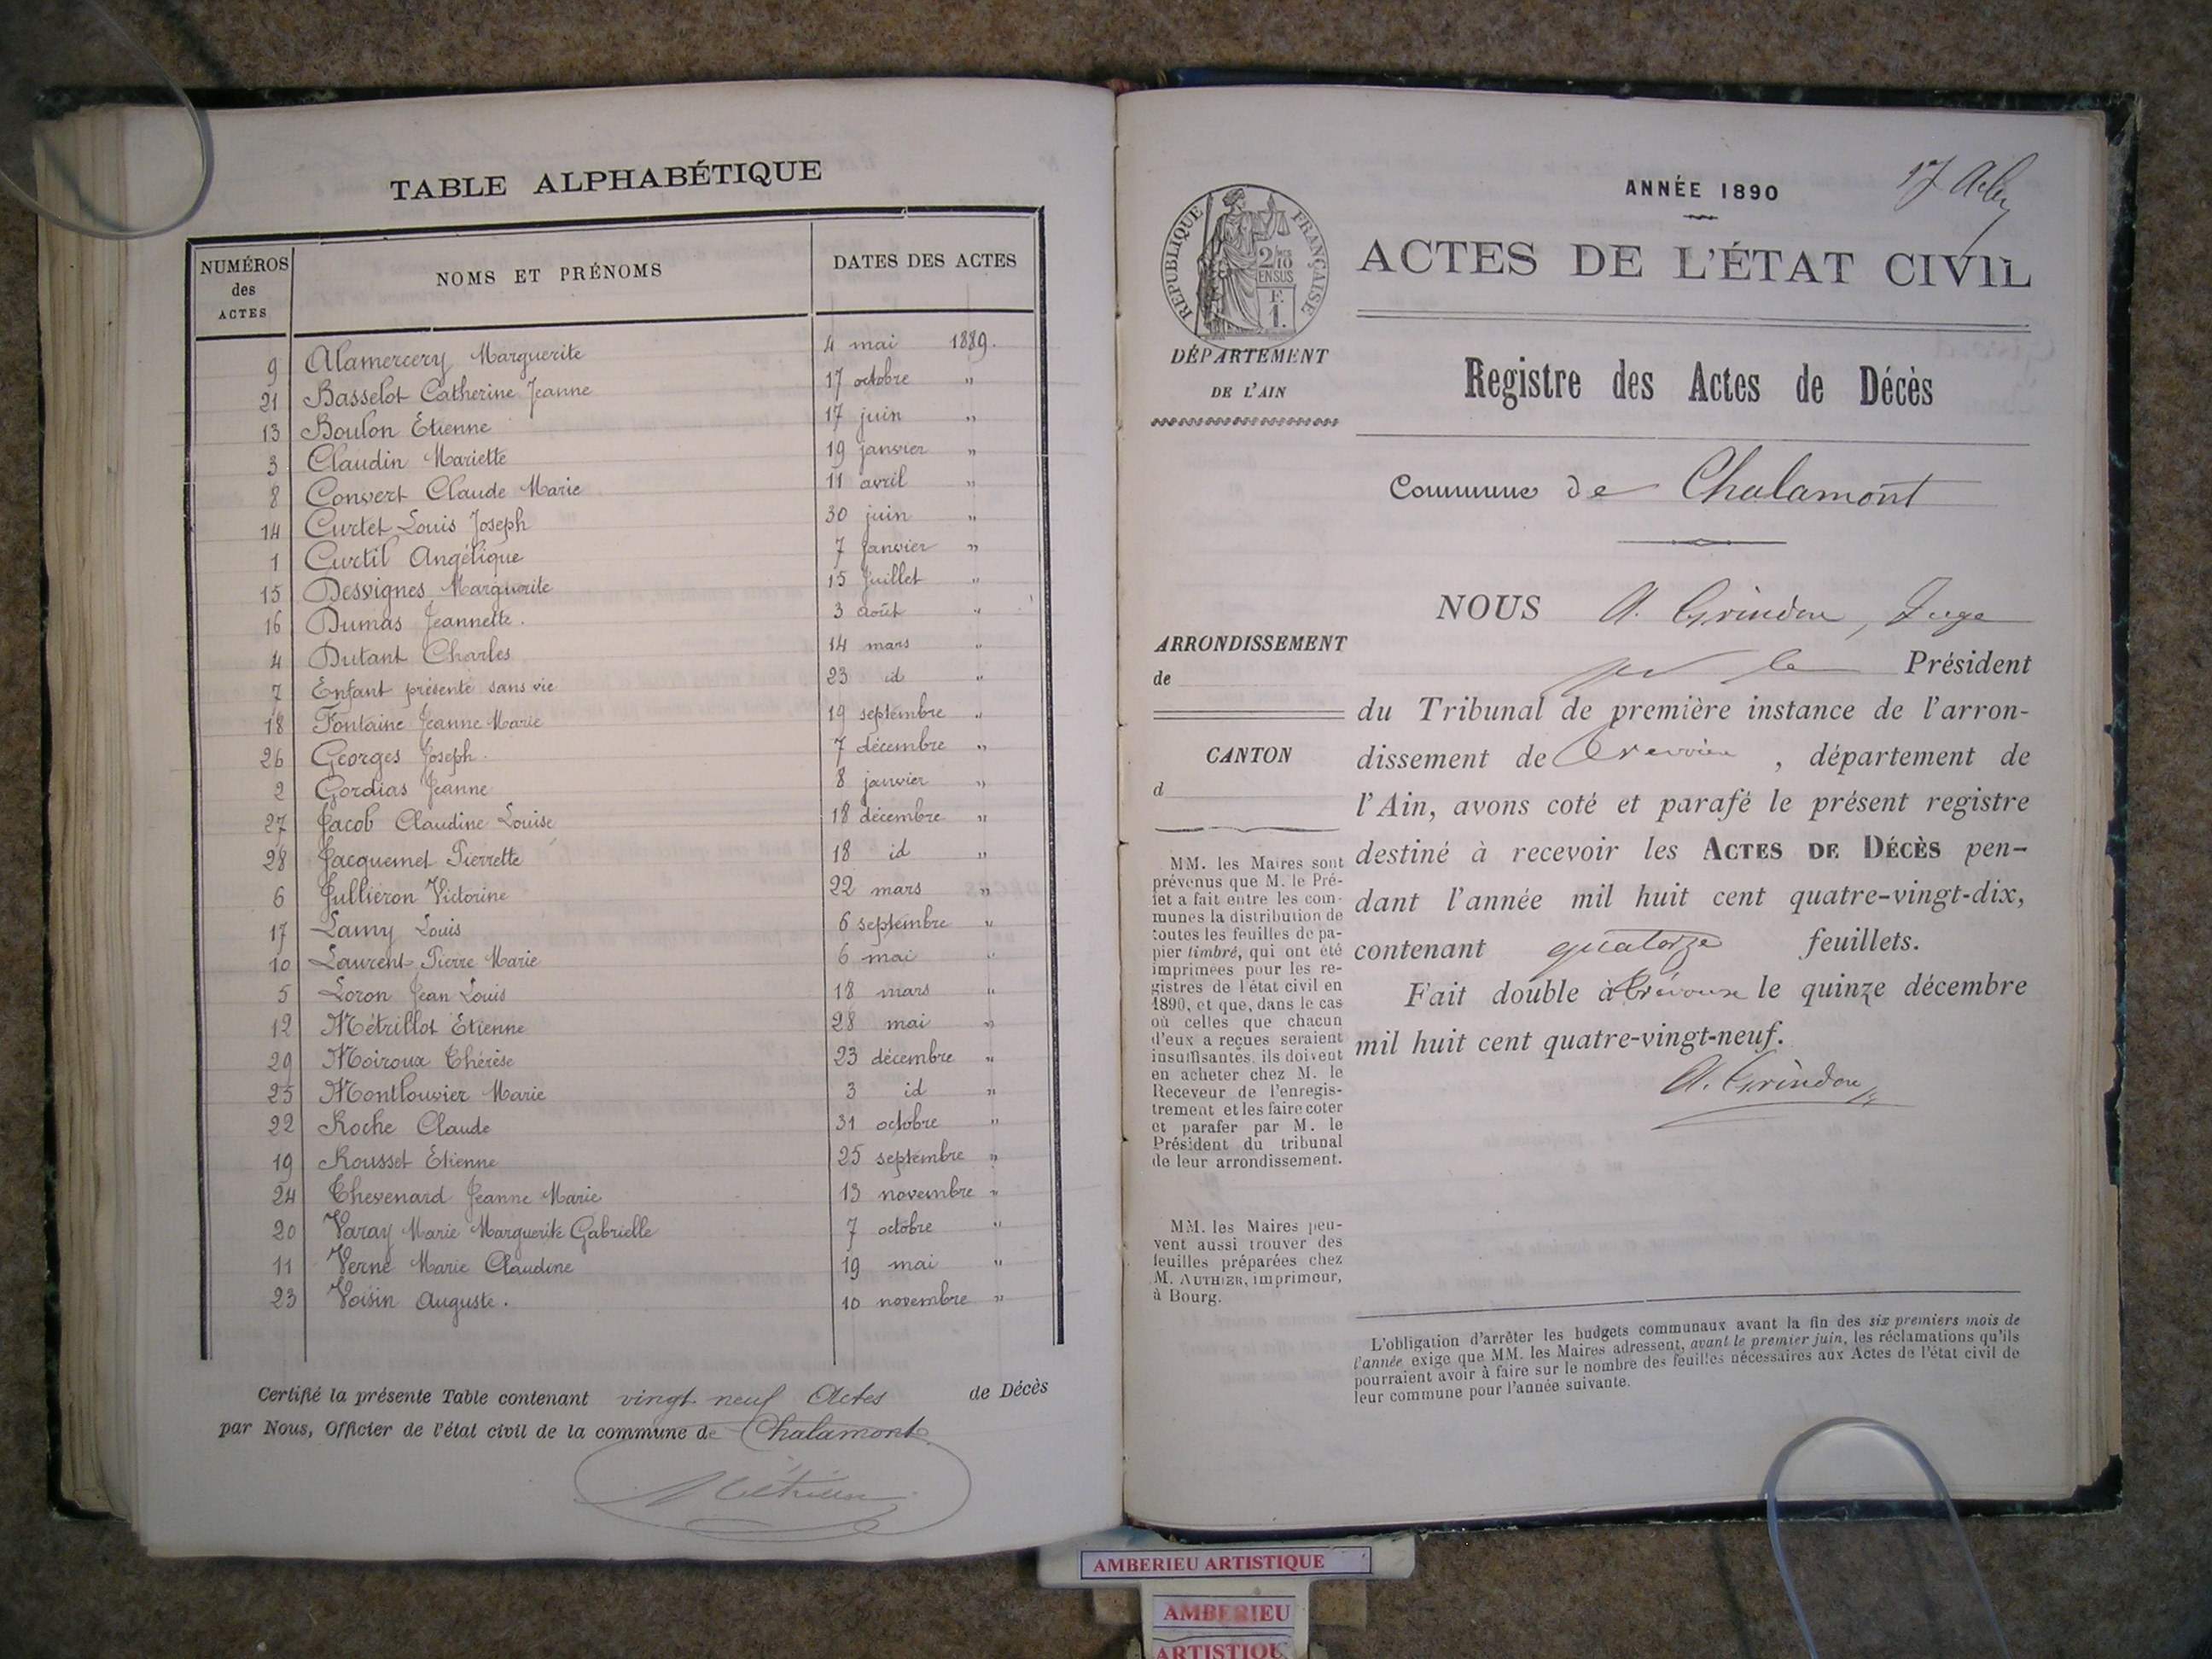 TABLE ALPHABÉTIQUE
NUMÉROS
des
ACTES
NOMS ET PRÉNOMS
DATES DES ACTES
9 Alamercery Marguerite 4 mai 1889.
21 Basselot Catherine Jeanne 17 octobre "
13 Boulon Etienne 17 juin "
3 Claudin Mariette 19 janvier "
8 Convert Claude Marie 11 avril "
14 Curtet Louis Joseph 30 juin "
1 Curtil Angélique 7 Janvier "
15 Desvignes Marguerite 15 Juillet "
16 Dumas Jeannette. 3 août "
4 Dutant Charles 14 mars "
7 Enfant présenté sans vie 23 id "
18 Fontaine Jeanne Marie 19 septembre "
26 Georges Joseph 7 décembre "
2 Gordias Jeanne 8 janvier "
27 Jacob Claudine Louise 18 décembre "
28 Jacquemet Pierrette 18 id "
6 Julliéron Victorine 22 mars "
17 Lamy Louis 6 septembre "
10 Laurent Pierre Marie 6 mai "
5 Loron Jean Louis 18 mars "
12 Métrillot Etienne 28 mai "
29 Moiroux Thérèse 23 décembre "
25 Montlouvier Marie 3 id "
22 Roche Claude 31 octobre "
19 Rousset Etienne 25 septembre "
24 Thevenard Jeanne Marie 13 novembre "
20 Varay Marie Marguerite Gabrielle 7 octobre "
11 Verne Marie Claudine 19 mai "
23 Voisin Auguste. 10 novembre "
Certifié la présente Table contenant vingt neuf Actes de Décès
par Nous, Officier de l'état civil de la commune de Chalamont
17
ANNÉE 1890
RÉPUBLIQUE FRANÇAISE
2/10
EN SUS
F.
1.
ACTES DE L'ÉTAT CIVIL
DÉPARTEMENT
DE L'AIN
Registre des Actes de Décès
Commune de Chalamont
NOUS A. Grindon, Juge
ARRONDISSEMENT
de
CANTON
d
pr le Président
du Tribunal de première instance de l'arron-
dissement de Trévoux, département de
l'Ain, avons coté et parafé le présent registre
destiné à recevoir les ACTES DE DÉCÈS pen-
dant l'année mil huit cent quatre-vingt-dix,
contenant quatorze feuillets.
Fait double à Trévoux le quinze décembre
mil huit cent quatre-vingt-neuf.
A. Grindon
MM. les Maires sont
prévenus que M. le Pré-
fet a fait entre les com-
munes la distribution de
toutes les feuilles de pa-
pier timbré, qui ont été
imprimées pour les re-
gistres de l'état civil en
1890, et que, dans le cas
où celles que chacun
d'eux a reçues seraient
insuffisantes, ils doivent
en acheter chez M. le
Receveur de l'enregis-
trement et les faire coter
et parafer par M. le
Président du tribunal
de leur arrondissement.
MM. les Maires peu-
vent aussi trouver des
feuilles préparées chez
M. AUTHIER, imprimeur,
à Bourg.
L'obligation d'arrêter les budgets communaux avant la fin des six premiers mois de
l'année exige que MM. les Maires adressent, avant le premier juin, les réclamations qu'ils
pourraient avoir à faire sur le nombre des feuilles nécessaires aux Actes de l'état civil de
leur commune pour l'année suivante.
AMBERIEU ARTISTIQUE
AMBERIEU
ARTISTIQU